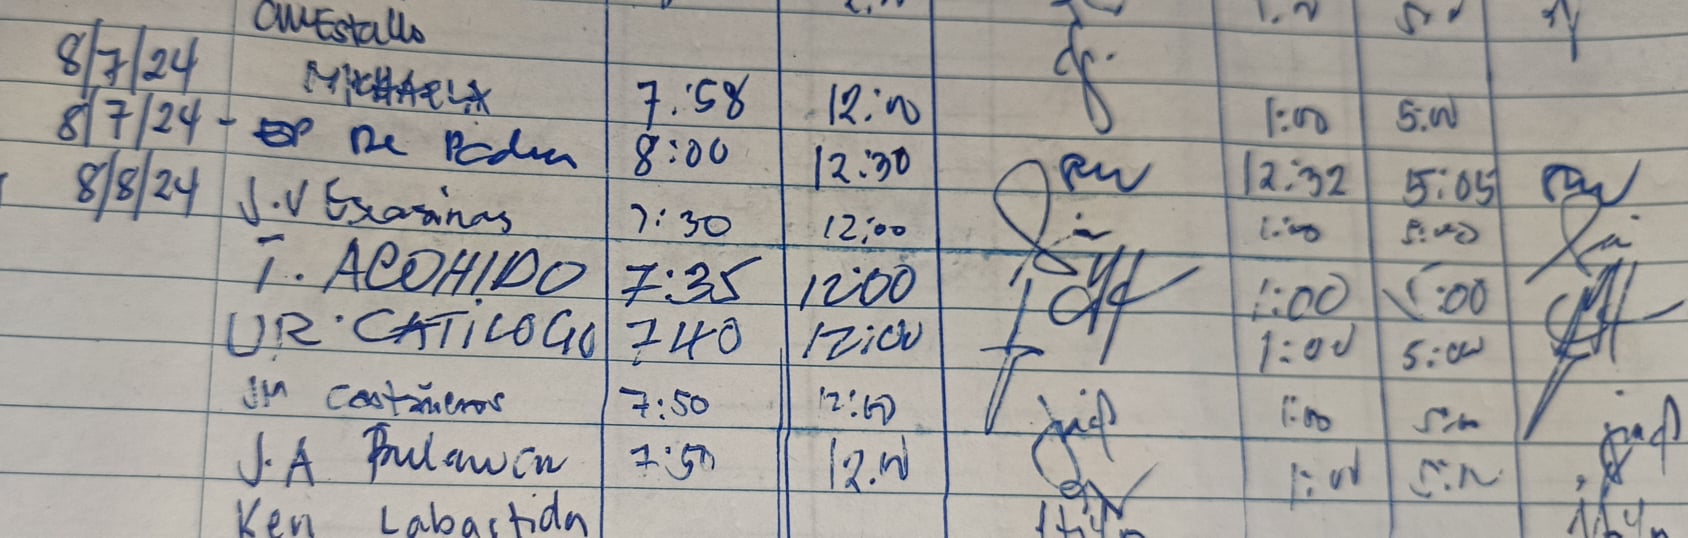 CM Estallo
8/7/24 MICHAELA 7:58 12:00 1:00 5:00
8/7/24 - De Padua 8:00 12:30 12:32 5:05
8/8/24 J.V Escasinas 7:30 12:00 1:00 5:00
T. ACOHIDO 7:35 12:00 1:00 5:00
UR. CATILOGO 7:40 12:00 1:00 5:00
JM Castañeros 7:50 12:00 1:00 5:00
J.A 7:50 12:00 1:00 5:00
Ken Labastida